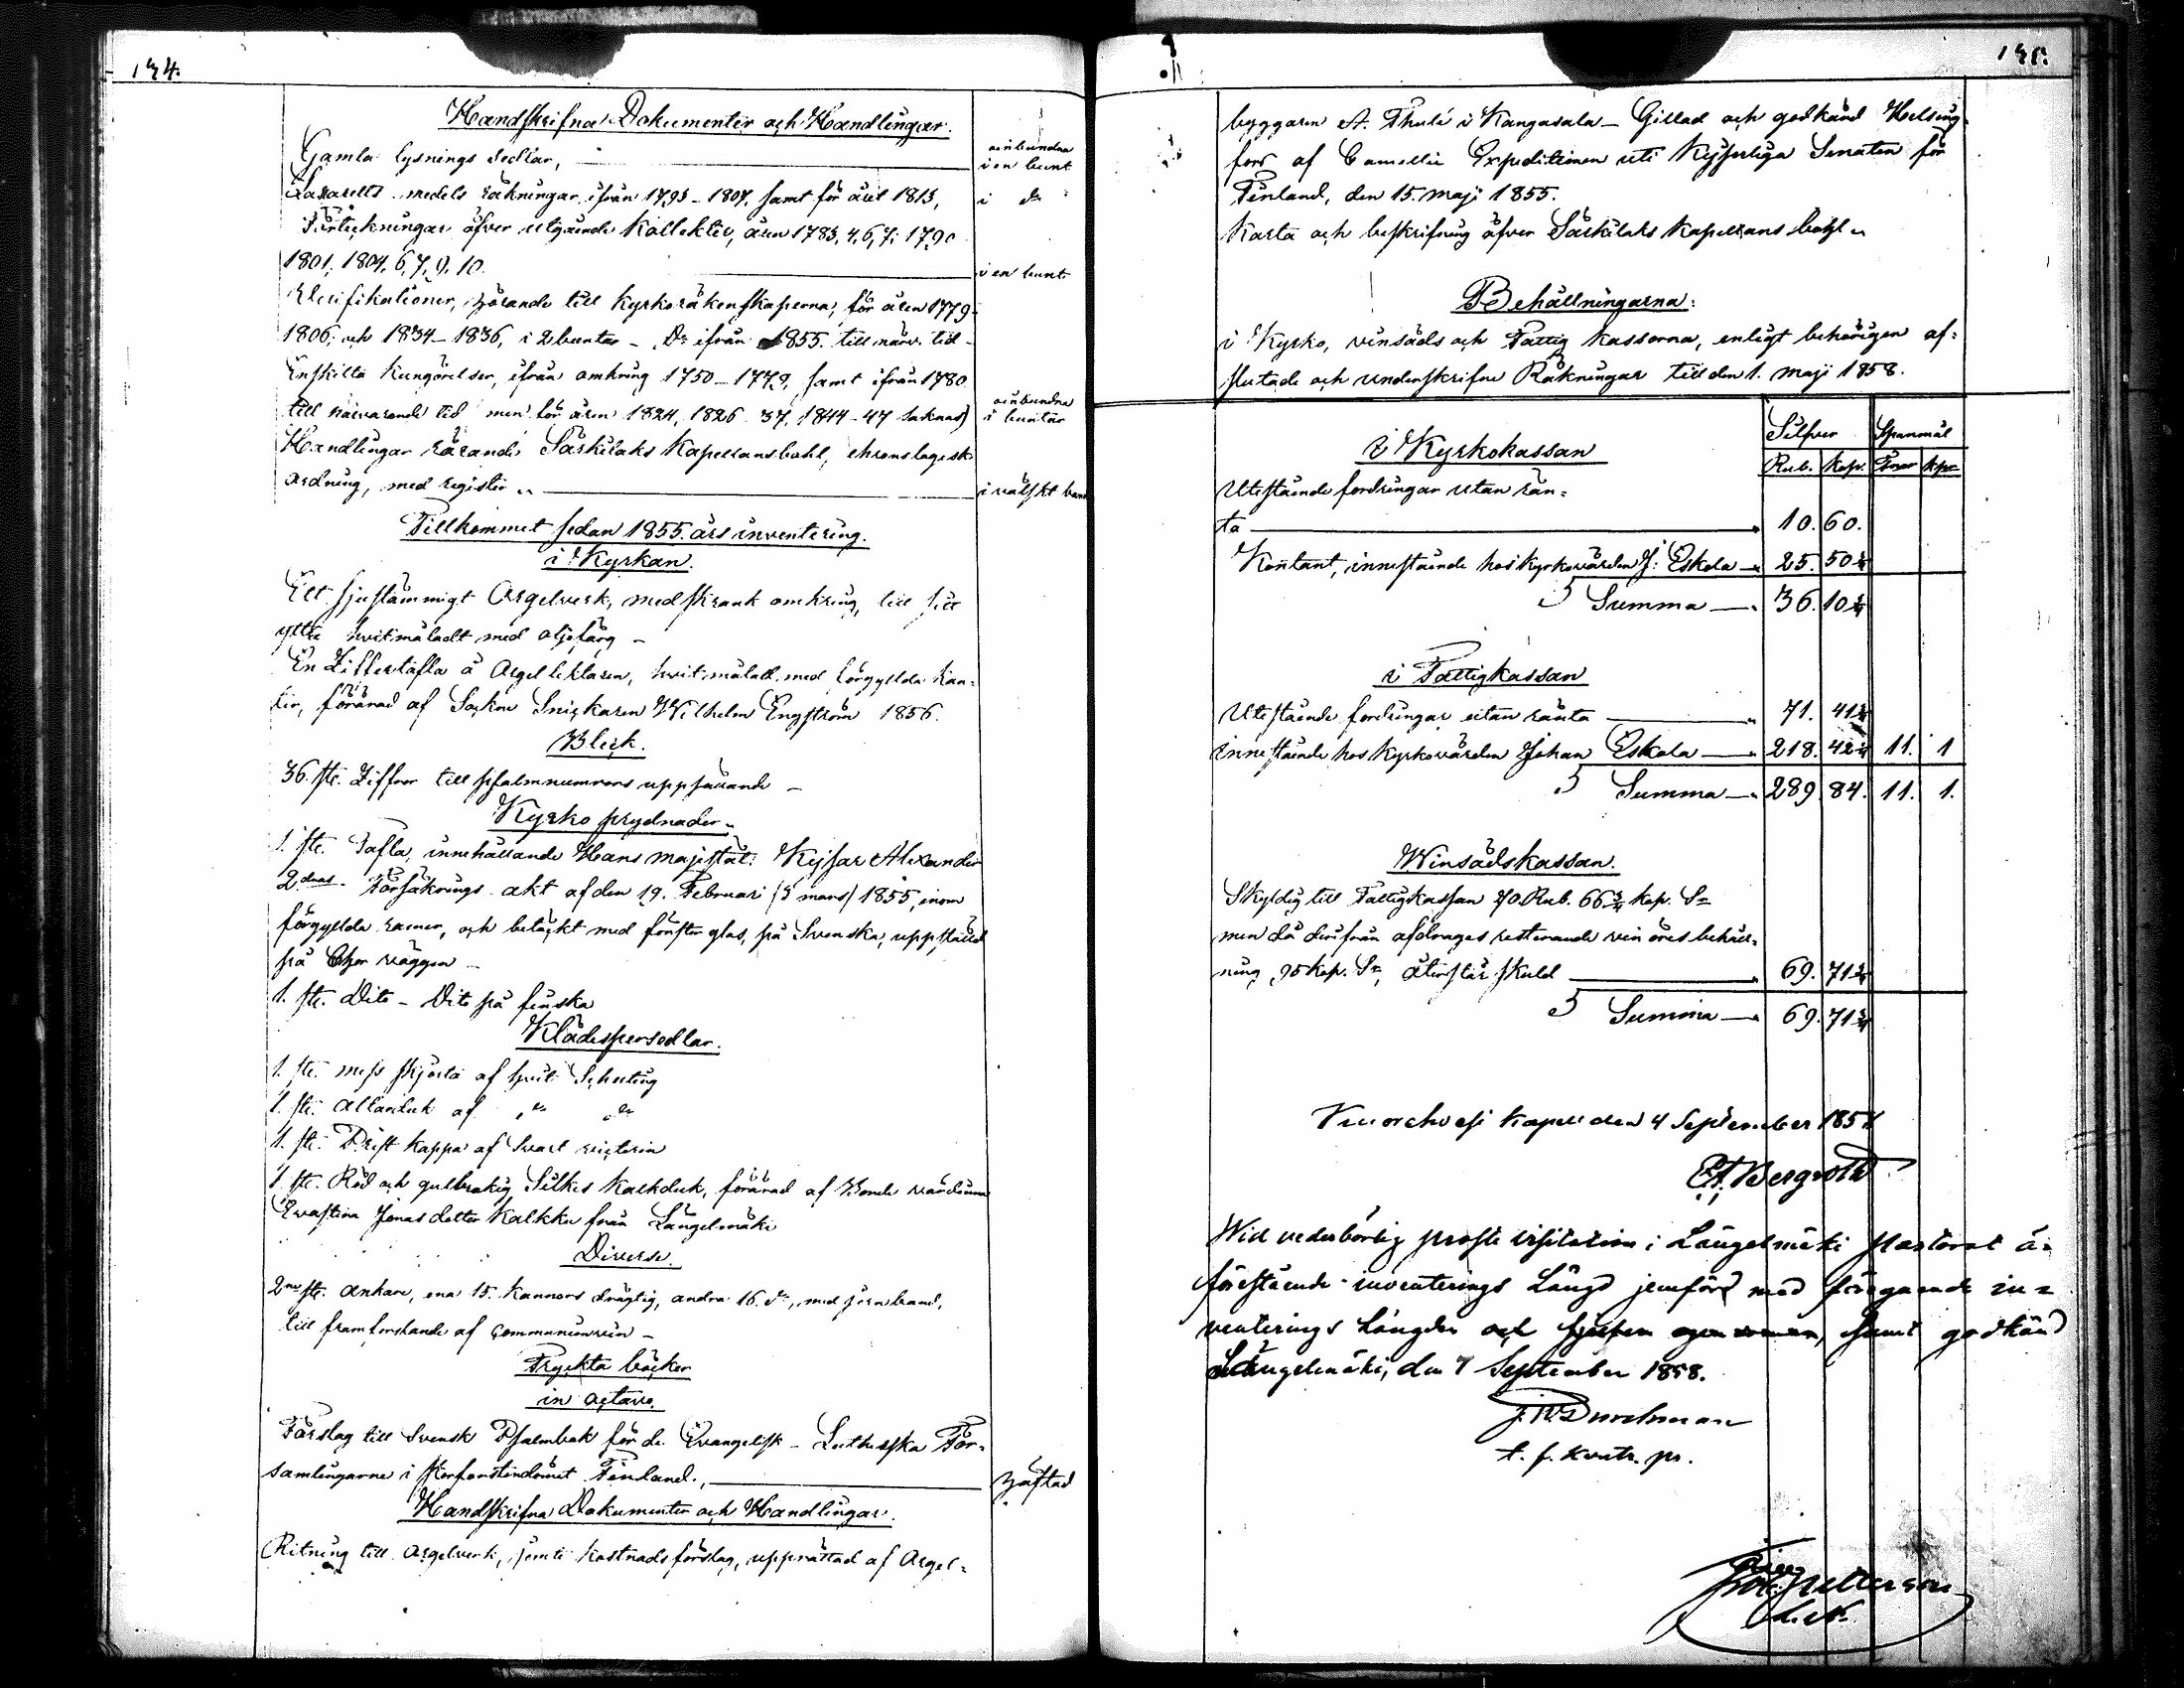 134.
Handskrifna Dokumenter och Handlingar.
Gamla lysnings Sedlar, oinbundna i en bunt
Lasaretts medels räkningar, ifrån 1793-1807, samt för året 1813, i do
Förteckningar öfver utgående Kollekter, åren 1783, 4, 6, 7; 1790
1801, 1804, 6, 7, 9, 10. i en bunt
Verifikationer, hörande till kyrkoräkenskaperna, för åren 1779-
1806, och 1834-1836, i 2 buntar - Do ifrån 1855 till närv. tid -
Enskilta Kungörelser, ifrån omkring 1750-1779, samt ifrån 1780
till närvarande tid men för åren 1824, 1826-37, 1844-47 saknas) oinbundna i buntar
Handlingar rörande Särkilaks Kapellansbohl, chronologisk
ordning, med register „ i wälskt band
Tillkommet sedan 1855 års inventering.
i Kyrkan.
Ett sjustämmigt Orgelverk, med skrank omkring, till sitt
yttre hvitmåladt med oljefärg -
En Ziffertafla å Orgel lektaren, hvitmålad med förgyllda kan-
ter, förärad af Sockne Snickaren Wilhelm Engström 1856.
Bleck.
36. st. Ziffror till psalmnumrors uppsättande -
Kyrko prydnader „
1. st. Tafla, innehållande Hans Majestät Kejsar Alexander
2dras Försäkrings akt af den 19. Februari (3 mars) 1855, inom
förgyllda ramar, och betäckt med fönster glas, på Svenska, uppställd
på Chor väggen -
1. st. Dito - Dito på finska
Klädespersedlar.
1. st. mess skjorta af hvit Schuting
1. st. Altarduk af do do
1. st. Prest kappa af Svart
1. st. Röd och gulbrokig Silkes kalkduk, förärad af Bonde värdinnan
Evastina Jonas dotter Kalkku från Längelmäki
Diverse.
2ne st. ankare, ena 15. kannors drägtig, andra 16. do, med jern band,
till framforslande af communionvin -
Tryckta böcker
in octavo.
Förslag till Svensk Psalmbok för de Evangelisk-Lutherska För-
samlingarne i Storfurstendömet Finland., häftad
Handskrifna Dokumenter och Handlingar.
Ritning till Orgelverk, jemte kostnadsförslag, upprättad af Orgel-
135.
byggaren A. Thulé i Kangasala - Gillad och godkänd Helsing-
fors af Camerllie Expeditionen uti Kejserliga Senaten för
Finland, den 15. maji 1855.
Karta och beskrifning öfver Särkilaks Kapellans bohl „
Behållningarna:
i Kyrko, vinsäds och Fattig kassorna, enligt behörigen af-
slutade och underskrifne Räkningar till den 1. maji 1858.
Silfver Spanmål
i Kyrkokassan Rub. Kop. Tnor kpr
Utestående fordringar utan rän-
ta 10. 60.
Kontant, innestående hos kyrkovärden J: Eskola 25. 50 2/4
Summa 36. 10 2/4
i Fattigkassan
Utestående fordringar utan ränta 71. 41 3/4
innestående hos kyrkovärden Johan Eskola 218. 42 1/4 11. 1
Summa 289. 84. 11. 1.
Winsädskassan.
Skyldig till Fattigkassan 70 Rub. 66 3/4 kop. Sr
men då derifrån afdrages resterande vin öres behåll-
ning, 95 kop. Sr, återstår skuld 69. 71 3/4
Summa 69. 71 3/4
Kuorehvesi Kapell den 4 September 1858
Bergroth
Wid vederbörlig proste visitation i Längelmäki Pastorat ä-
förestående inventerings Längd jemförd med föregående in-
venterings Längder och samt godkänd
Längelmäki, den 7 September 1858.
J. W. Durchman
t. f. kontr. pr.